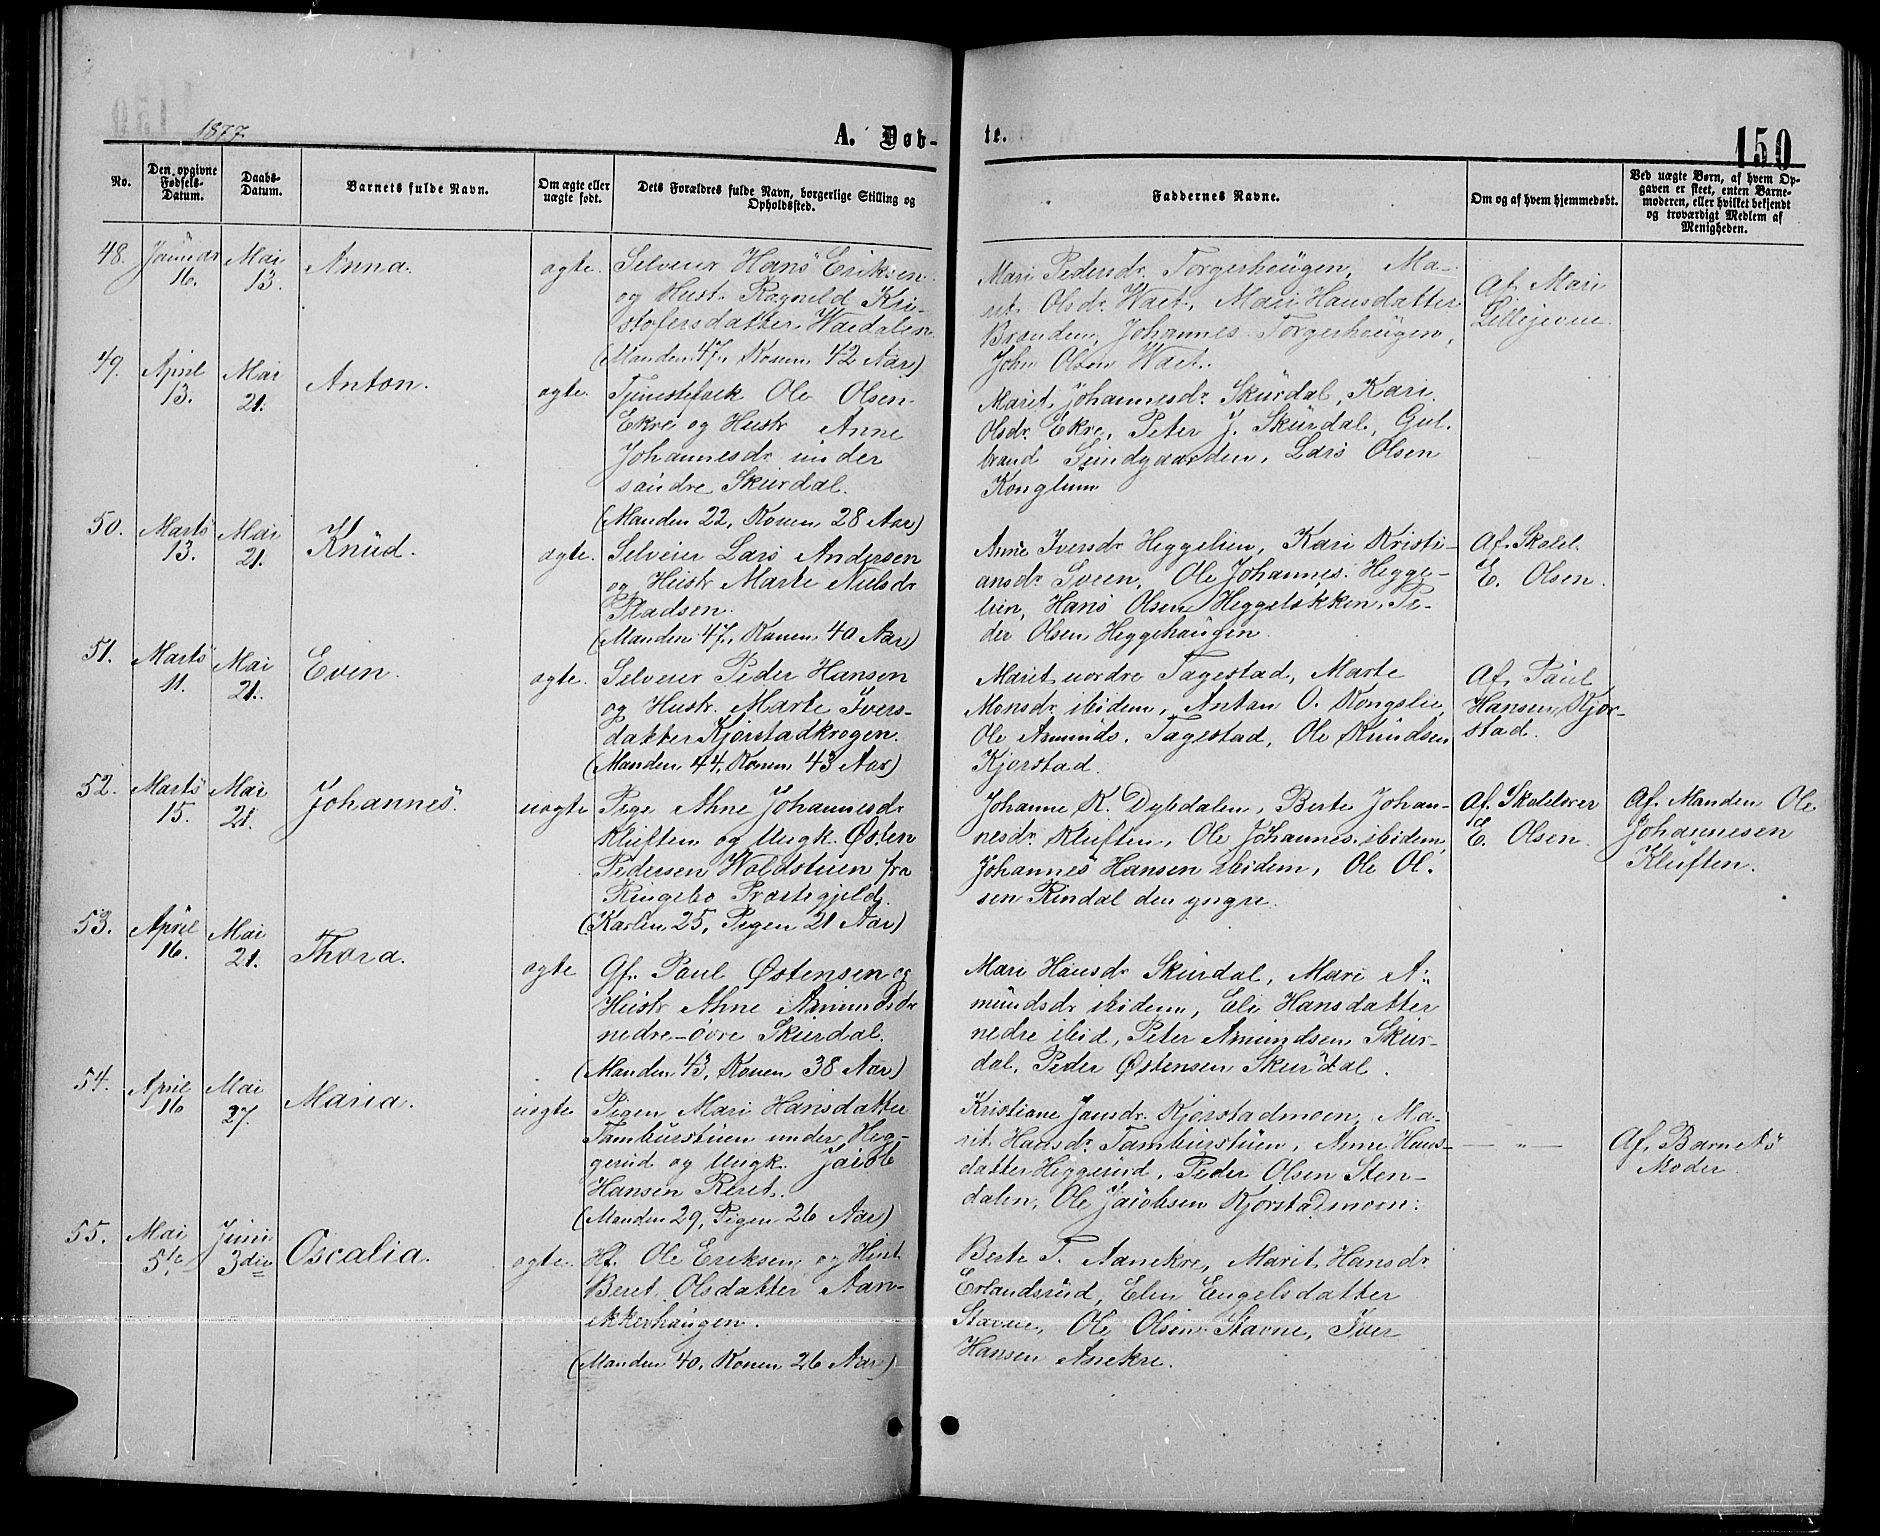 1877.
A. Døb-
te.
150
No.
Den opgivne Fødsels-Datum.
Daabs-Datum.
Barnets fulde Navn.
Om ægte eller uægte født.
Dets Forældres fulde Navn, borgerlige Stilling og Opholdssted.
Faddernes Navne.
Om og af hvem hjemmedøbt.
Ved uægte Børn, af hvem Opgaven er skeet, enten Barnemoderen, eller hvilket bekjendt og troværdigt Medlem af Menigheden.
48.
Januar 16.
Mai 13.
Anna.
ægte.
Selveier Hans Eriksen
og Hust. Ragnild Kri-
stofersdatter Vaedalen
(Manden 47, Konen 42 Aar)
Mari Pedersdr. Torgerhaugen, Ma-
rit Olsdr. Waet, Mari Hansdatter
Branden, Johannes Torgerhaugen,
John Olsen Waet.
Af Mari
Lillejevne.
49.
April 13.
Mai 21.
Anton.
ægte.
Tjenestefolk Ole Olsen
Ekre og Hustr Anne
Johannesdr under
søndre Skurdal.
(Manden 22, Konen 28 Aar)
Marit Johannesdr. Skurdal, Kari
Olsdr. Ekre, Peter J. Skurdal, Gul-
brand Sundgaarden, Lars Olsen
Konglum
50.
Marts 13.
Mai 21.
Knud.
ægte.
Selveier Lars Andersen
og Hustr Marte Nielsdr
Pladsen.
(Manden 47, Konen 40 Aar)
Anne Iversdr Heggelien, Kari Kristi-
ansdr. Sveen, Ole Johannes. Hegge-
lien, Hans Olsen Heggeløkken, Pe-
der Olsen Heggehaugen.
Af Skolel.
E. Olsen.
51.
Marts 11.
Mai 21.
Even.
ægte.
Selveier Peder Hansen
og Hustr. Marte Ivers-
datter Kjørstadkrogen.
(Manden 44, Konen 43 Aar)
Marit nordre Fagestad, Marte
Monsdr. ibidem, Anton O. Kongslie,
Ole Asmunds. Fagestad, Ole Knudsen
Kjørstad.
Af Paul
Hansen Kjør-
stad.
52.
Marts 15.
Mai 21.
Johannes.
uægte
Pige Ahne Johannesdr
Kluften og Ungk. Østen
Pedersen Woldstuen fra
Ringebo Præstegjeld.
(Karlen 25, Pigen 21 Aar)
Johanne K. Dybdalen, Berte Johan-
nesdr. Kluften, Ole Johannes. ibidem,
Johannes Hansen ibidem, Ole Ol-
sen Rindal den yngre.
Af Skolelærer
E. Olsen.
Af Manden Ole
Johannesen
Kluften.
53.
April 16.
Mai 21.
Thora.
ægte
Gf. Paul Østensen og
Hustr Ahne Amundsdr
nedre-øvre Skurdal.
(Manden 43, Konen 38 Aar)
Mari Hansdr Skurdal, Mari A-
mundsdr ibidem, Eli Hansdatter
nedre ibid, Peter Amundsen Skur-
dal, Peder Østensen Skurdal.
54.
April 16
Mai 27.
Maria.
uægte
Pigen Mari Hansdatter
Tamburstuen under Heg-
gerud og Ungk. Jacob
Hansen Reret.
(Manden 29, Pigen 26 Aar)
Kristiane Jansdr. Kjørstadmoen, Ma-
rit Hansdr. Tamburstuen, Anne Hans-
datter Heggerud, Peder Olsen Sten-
dalen, Ole Jacobsen Kjørstadmoen.
— " —
Af Barnets
Moder.
55.
Mai 5te
Juni 3die
Oscalia.
ægte.
Hf. Ole Eriksen og Hust.
Beret Olsdatter Aan-
ekkerhaugen.
(Manden 40, Konen 26 Aar)
Berte T. Aanekre, Marit Hansdr
Erlandsrud, Elen Engelsdatter
Stavne, Ole Olsen Stavne, Iver
Hansen Anekre.